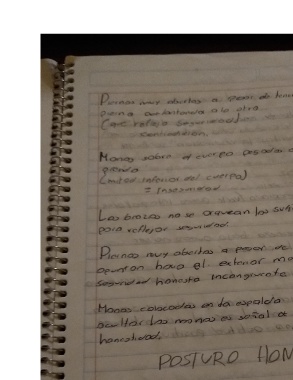 Piernas muy abiertas a pesar de tener
pierna a la otra
(que refleja seguridad)
contradicción.
Manos sobre el cuerpo pegadas a
(mitad inferior del cuerpo)
= Inseguridad
Los brazos no se arquean lo sufi
para reflejar seguridad
Piernas muy abiertas a pesar de
apuntan hacia el exterior
seguridad honesta incongruente
Manos colocadas en la espalda
ocultar las manos es señal d
POSTURO HON